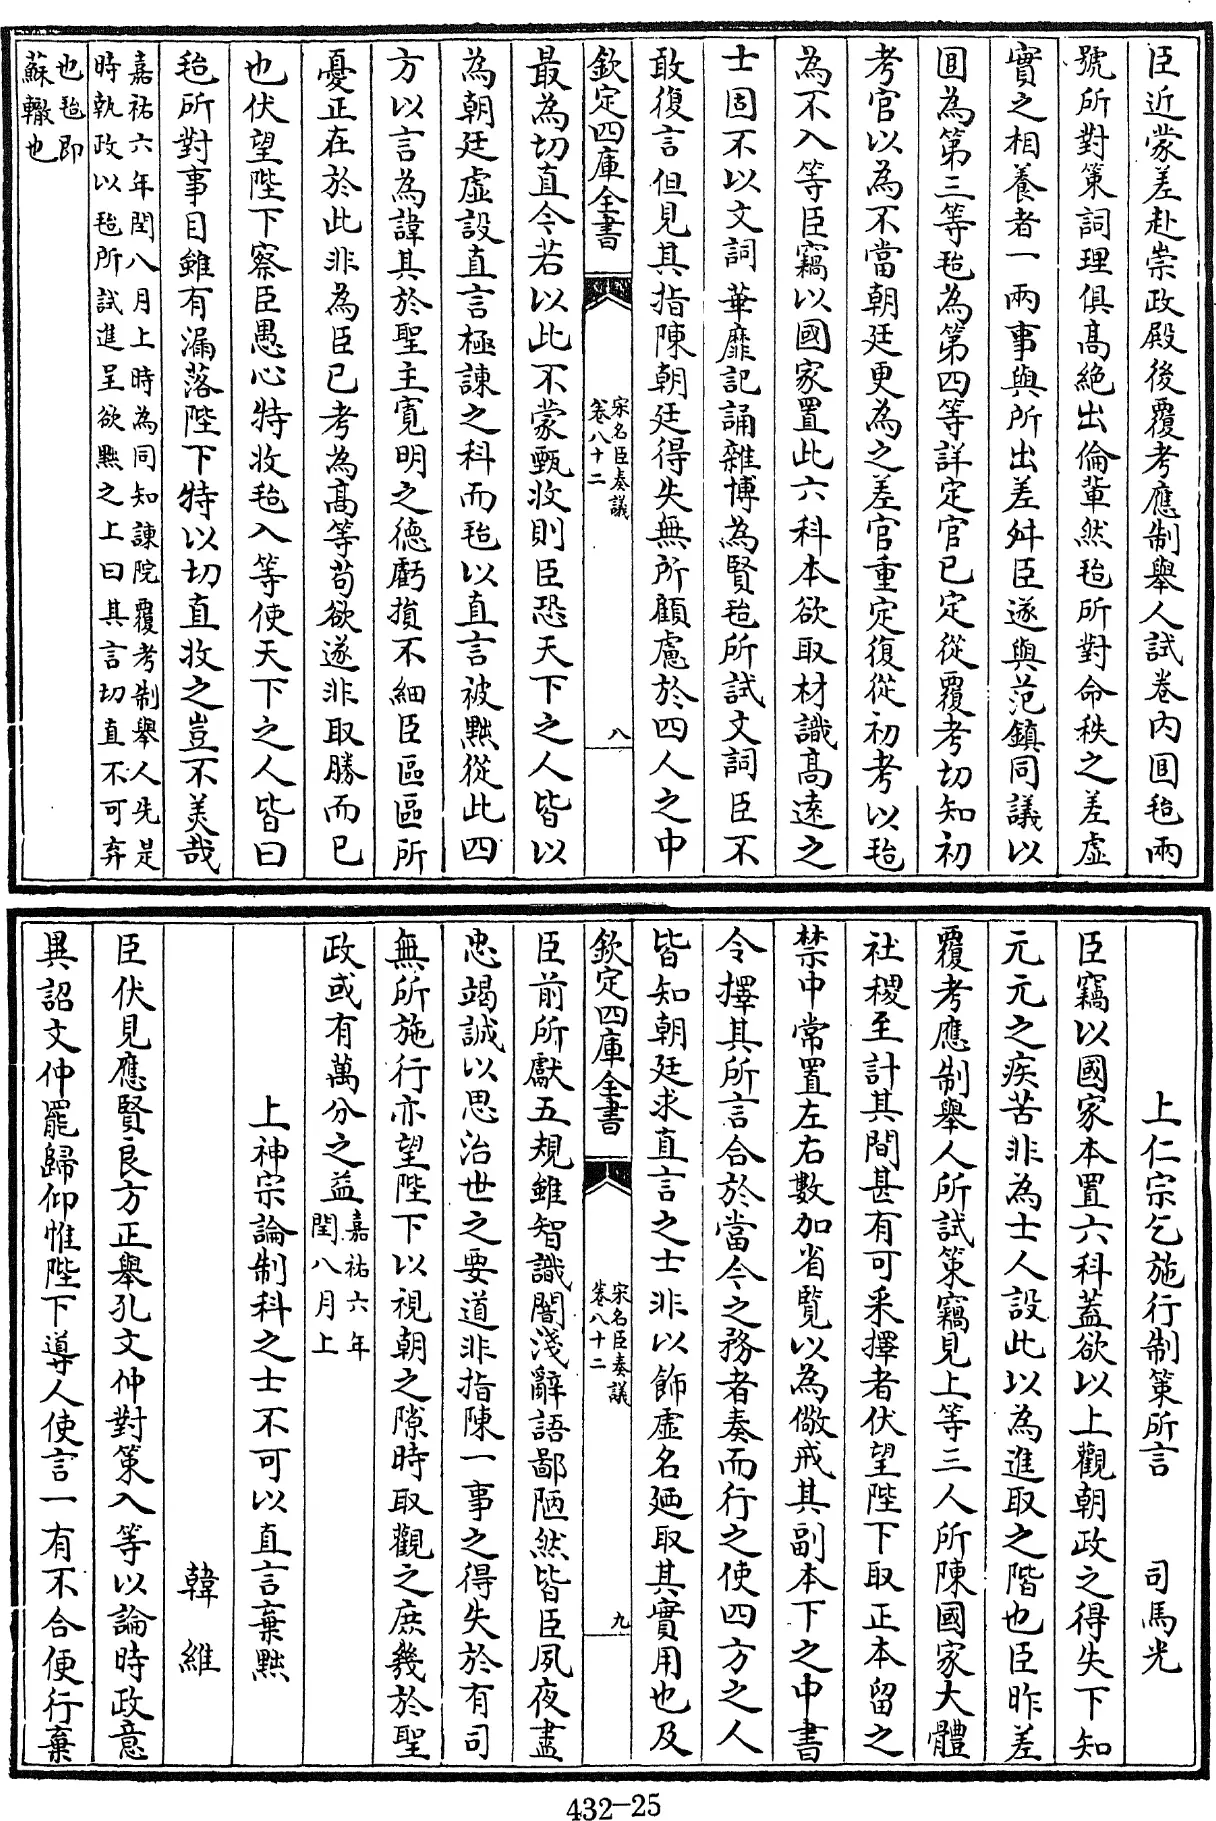 臣近蒙差赴崇政殿後覆考應制舉人試卷内圎毥兩
號所對策詞理俱髙絶出倫軰然毥所對命秩之差虚
實之相養者一兩事與所出差舛臣遂與范鎮同議以
圎為第三等毥為第四等詳定官已定從覆考切知初
考官以為不當朝廷更為之差官重定復從初考以毥
為不入等臣竊以國家置此六科本欲取材識髙逺之
士固不以文詞華靡記誦雜博為賢毥所試文詞臣不
敢復言但見其指陳朝廷得失無所顧慮於四人之中
欽定四庫全書
宋名臣奏議
卷八十二
八
最為切直今若以此不蒙甄收則臣恐天下之人皆以
為朝廷虚設直言極諌之科而毥以直言被黜從此四
方以言為諱其於聖主寛明之德虧損不細臣區區所
憂正在於此非為臣已考為髙等茍欲遂非取勝而已
也伏望陛下察臣愚心特收毥入等使天下之人皆曰
毥所對事目雖有漏落陛下特以切直收之豈不美哉
嘉祐六年閏八月上時為同知諌院覆考制舉人先是
時執政以毥所試進呈欲黜之上曰其言切直不可弃
也毥即
蘇轍也
上仁宗乞施行制策所言 司馬光
臣竊以國家本置六科蓋欲以上觀朝政之得失下知
元元之疾苦非為士人設此以為進取之階也臣昨差
覆考應制舉人所試策竊見上等三人所陳國家大體
社稷至計其間甚有可采擇者伏望陛下取正本留之
禁中常置左右數加省覧以為儆戒其副本下之中書
令擇其所言合於當今之務者奏而行之使四方之人
皆知朝廷求直言之士非以飾虚名廼取其實用也及
欽定四庫全書
宋名臣奏議
卷八十二
九
臣前所獻五規雖智識闇淺辭語鄙陋然皆臣夙夜盡
忠竭誠以思治世之要道非指陳一事之得失於有司
無所施行亦望陛下以視朝之隙時取觀之庶幾於聖
政或有萬分之益嘉祐六年
閏八月上
上神宗論制科之士不可以直言棄黜
韓維
臣伏見應賢良方正舉孔文仲對策入等以論時政意
異詔文仲罷歸仰惟陛下導人使言一有不合便行棄
432-25